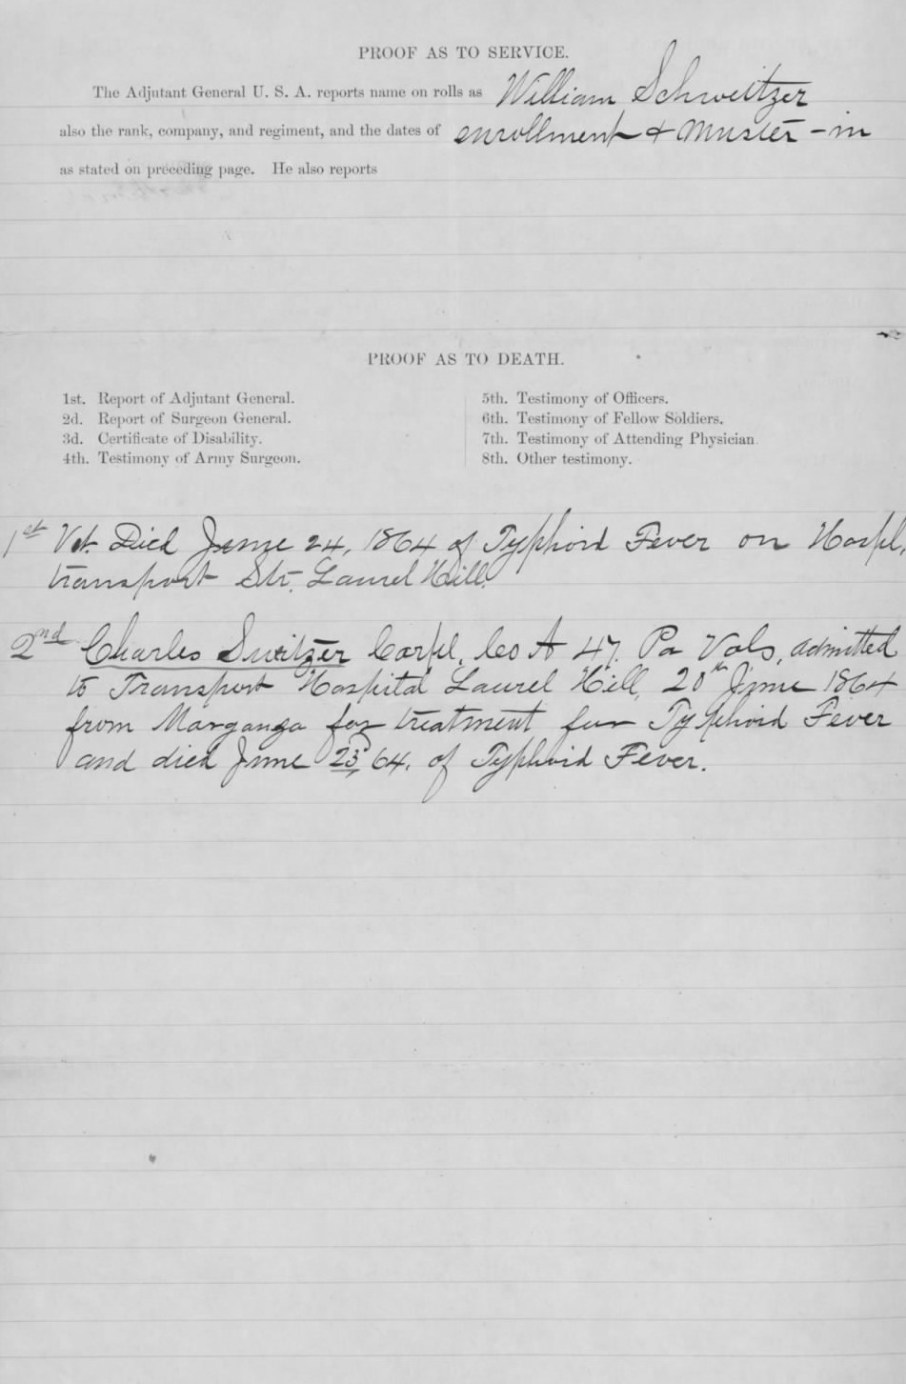 PROOF AS TO SERVICE.
The Adjutant General U. S. A. reports name on rolls as William Schweitzer
also the rank, company, and regiment, and the dates of enrollment & muster-in
as stated on preceding page. He also reports
PROOF AS TO DEATH.
1st. Report of Adjutant General.
2d. Report of Surgeon General.
3d. Certificate of Disability.
4th. Testimony of Army Surgeon.
5th. Testimony of Officers.
6th. Testimony of Fellow Soldiers.
7th. Testimony of Attending Physician.
8th. Other testimony.
1st Vet. Died June 24, 1864 of Typhoid Fever on Hospl,
transport Str. Laurel Hill.
2nd Charles Switzer Corpl, Co A 47. Pa Vols, admitted
to Transport Hospital Laurel Hill, 20th June 1864
from Morganza for treatment for Typhoid Fever
and died June 23, 64. of Typhoid Fever.